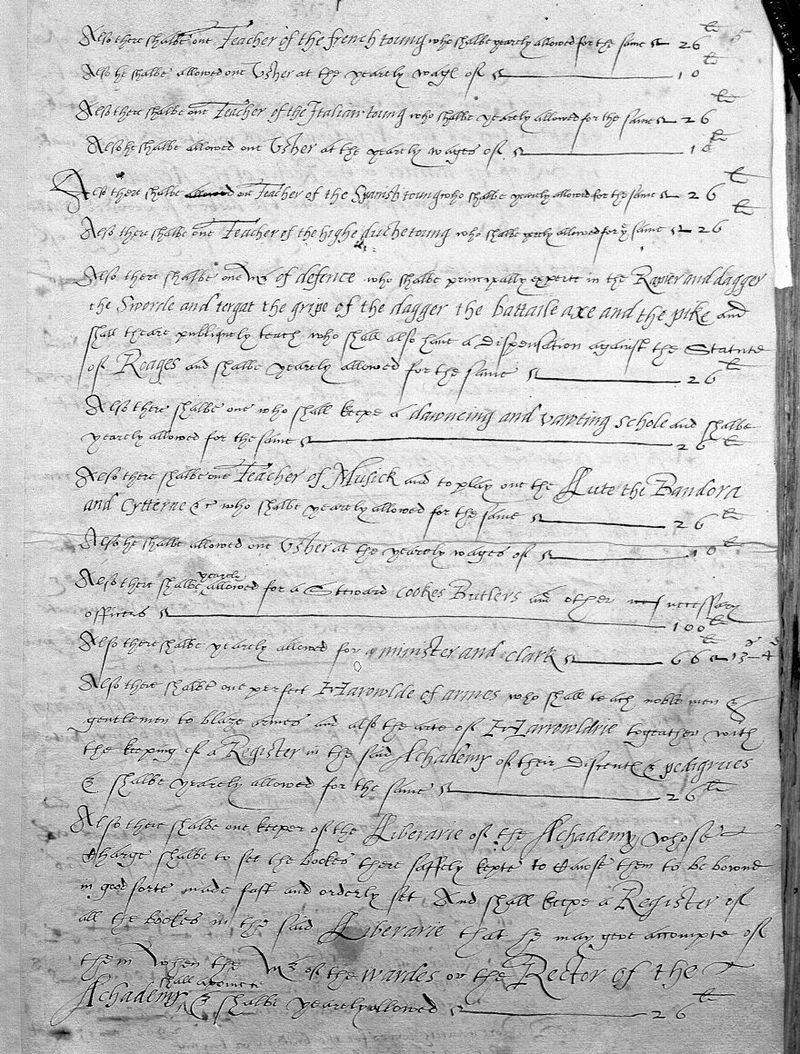 Also there shalbe one Teacher of the french toung who shalbe yearely allowed for the same 26 li
Also he shalbe allowed one Vsher at the yearely wage of 10 li
Also there shalbe one Teacher of the Italian toung who shalbe yearely allowed for the same 26 li
Also he shalbe allowed one Vsher at the yearely wages of 10 li
Also there shalbe allowed one Teacher of the Spanish toung who shalbe yearely allowed for the same 26 li
Also there shalbe one Teacher of the highe duche toung who shalbe yerely allowed for ye same 26 li
Also there shalbe one Mr of defence who shalbe principally experte in the Rapier and dagger
the Sworde and tergat the gripe of the dagger the battaile axe and the pike and
shall theare publiquely teach who shall also have a dispensation against the Statute
of Roages and shalbe yearely allowed for the same 26 li
Also there shalbe one who shall keepe a dawncing and vawting schole and shalbe
yearely allowed for the same 26 li
Also there shalbe one Teacher of Musick and to play one the Lute the Bandora
and Cytterne &c who shalbe yearely allowed for the same 26 li
Also he shalbe allowed one Vsher at the yearely wages of 10 li
Also there shalbe yearely allowed for a Steward cookes Butlers and other necessary
officers 100 li
Also there shalbe yearely allowed for a minister and clark 66 li 13 s 4 d
Also there shalbe one perfect Harowlde of armes who shall teach noble men &
gentlemen to blaze armes and also the arte of Harrowldrie togeather with
the keeping of a Register in the said Achademy of their discents & pedigrues
& shalbe yearely allowed for the same 26 li
Also there shalbe one keeper of the Liberarie of the Achademy whose
Charge shalbe to see the bockes there saffely kepte to cawse them to be bownd
in good sorte made fast and orderly set And shall keepe a Register of
all the bockes in the said Liberarie that he may geve accompte of
them when the Mr of the wardes or the Rector of the
Achademy shall apointe & shalbe yearely allowed 26 li